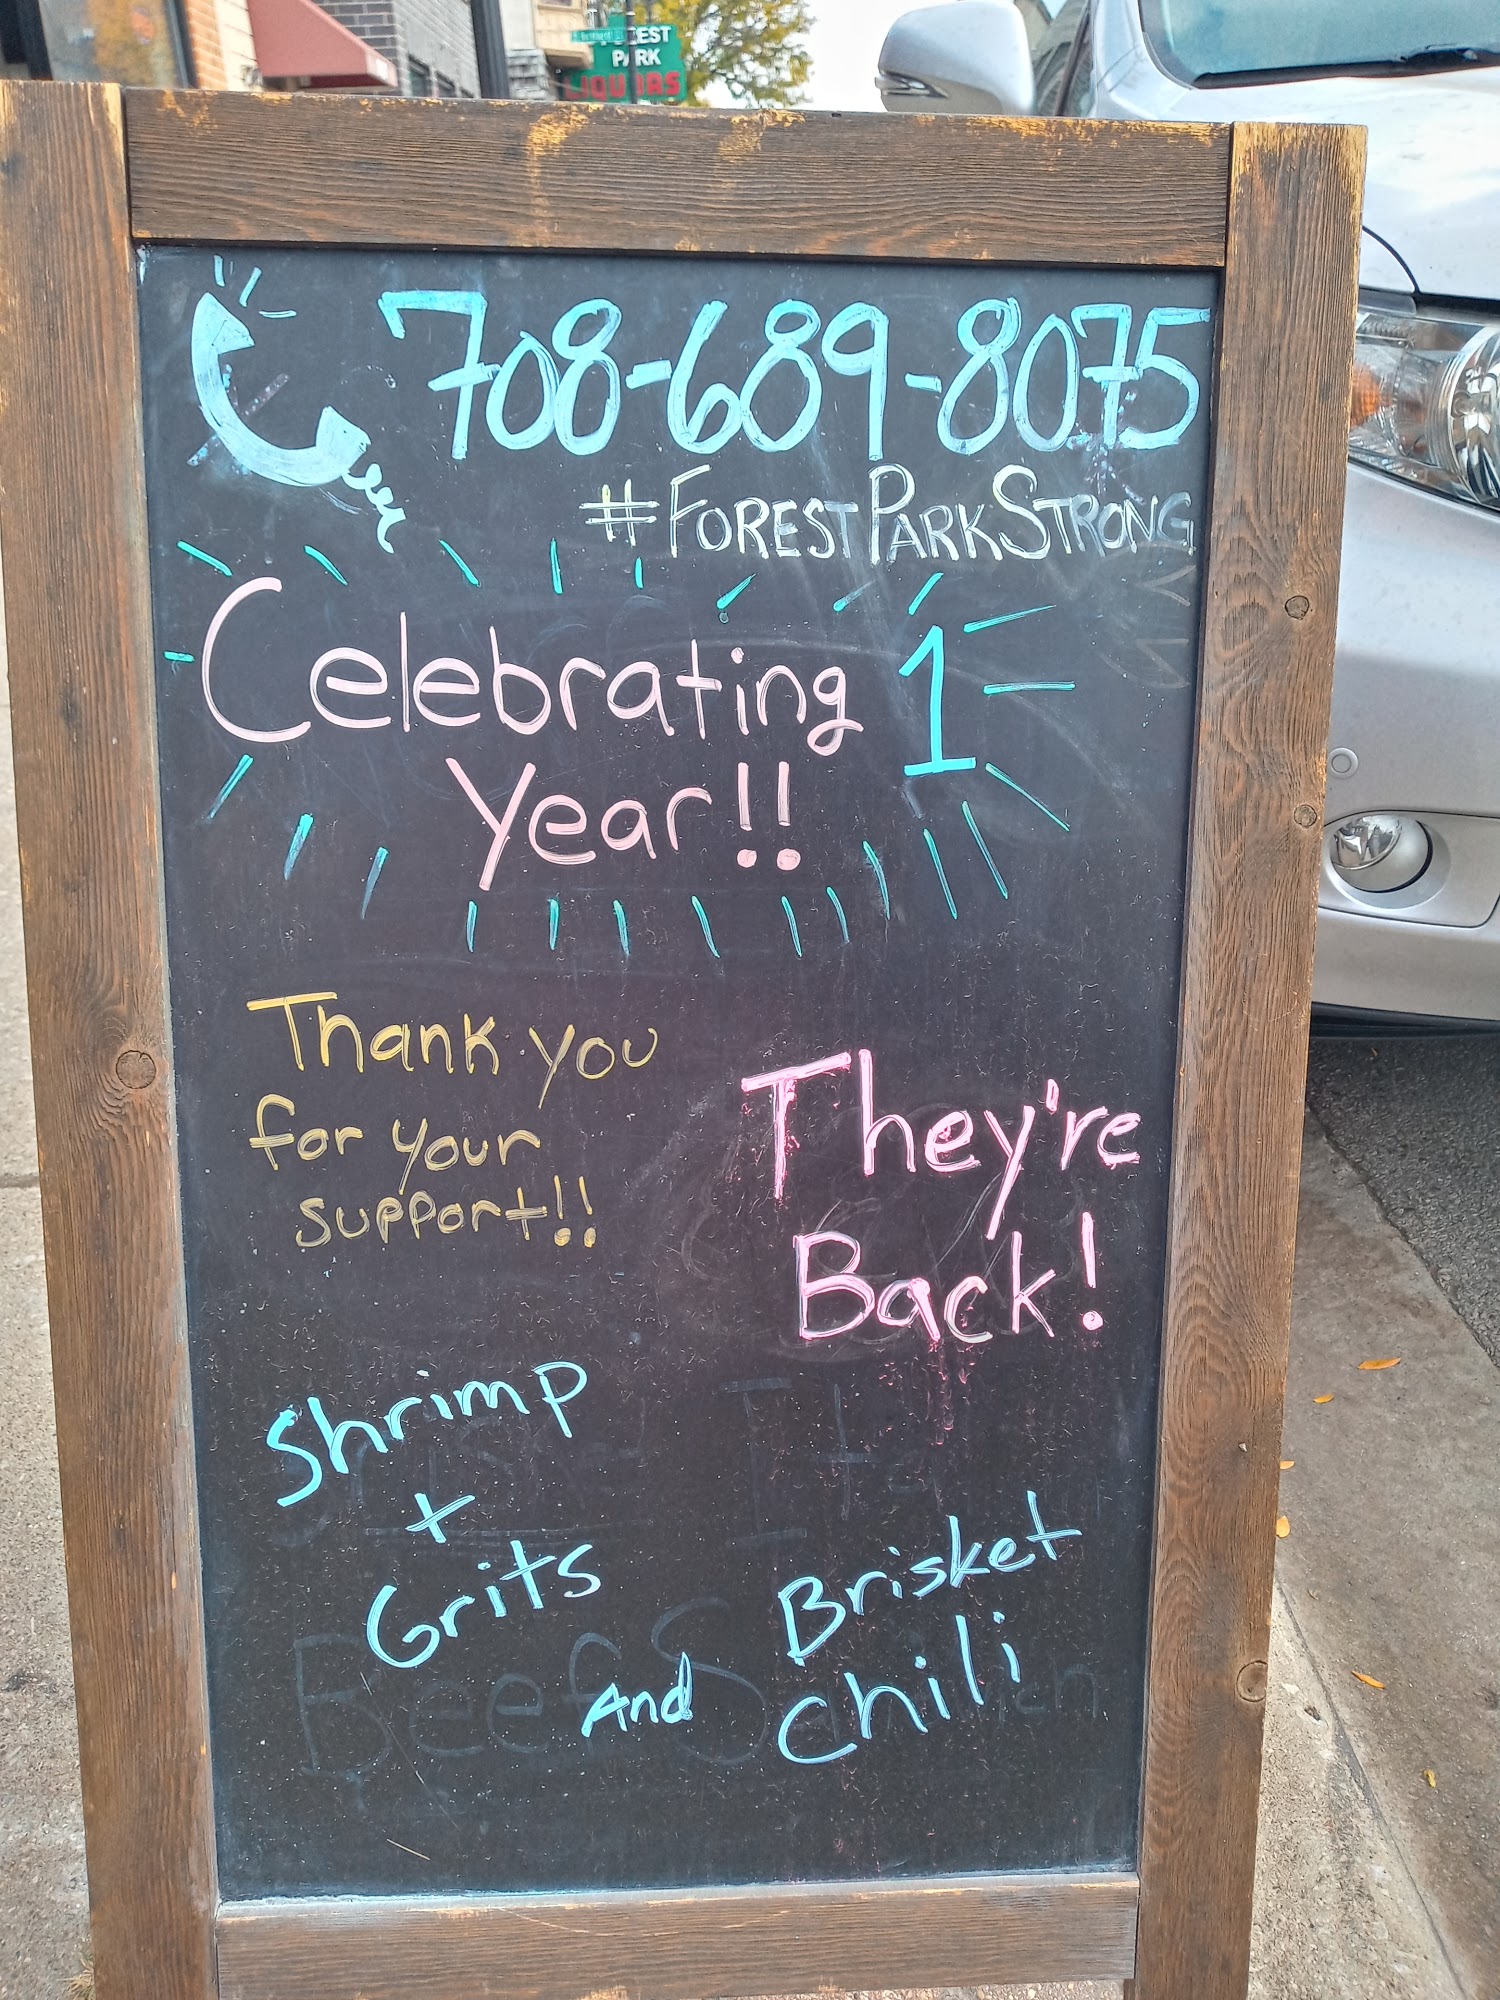 PARK
LIQUORS
708-689-8075
#FORESTPARKSTRONG
Celebrating 1
Year!!
Thank you
for your
support!!
They're
Back!
Shrimp
+
Grits
And
Brisket
Chili